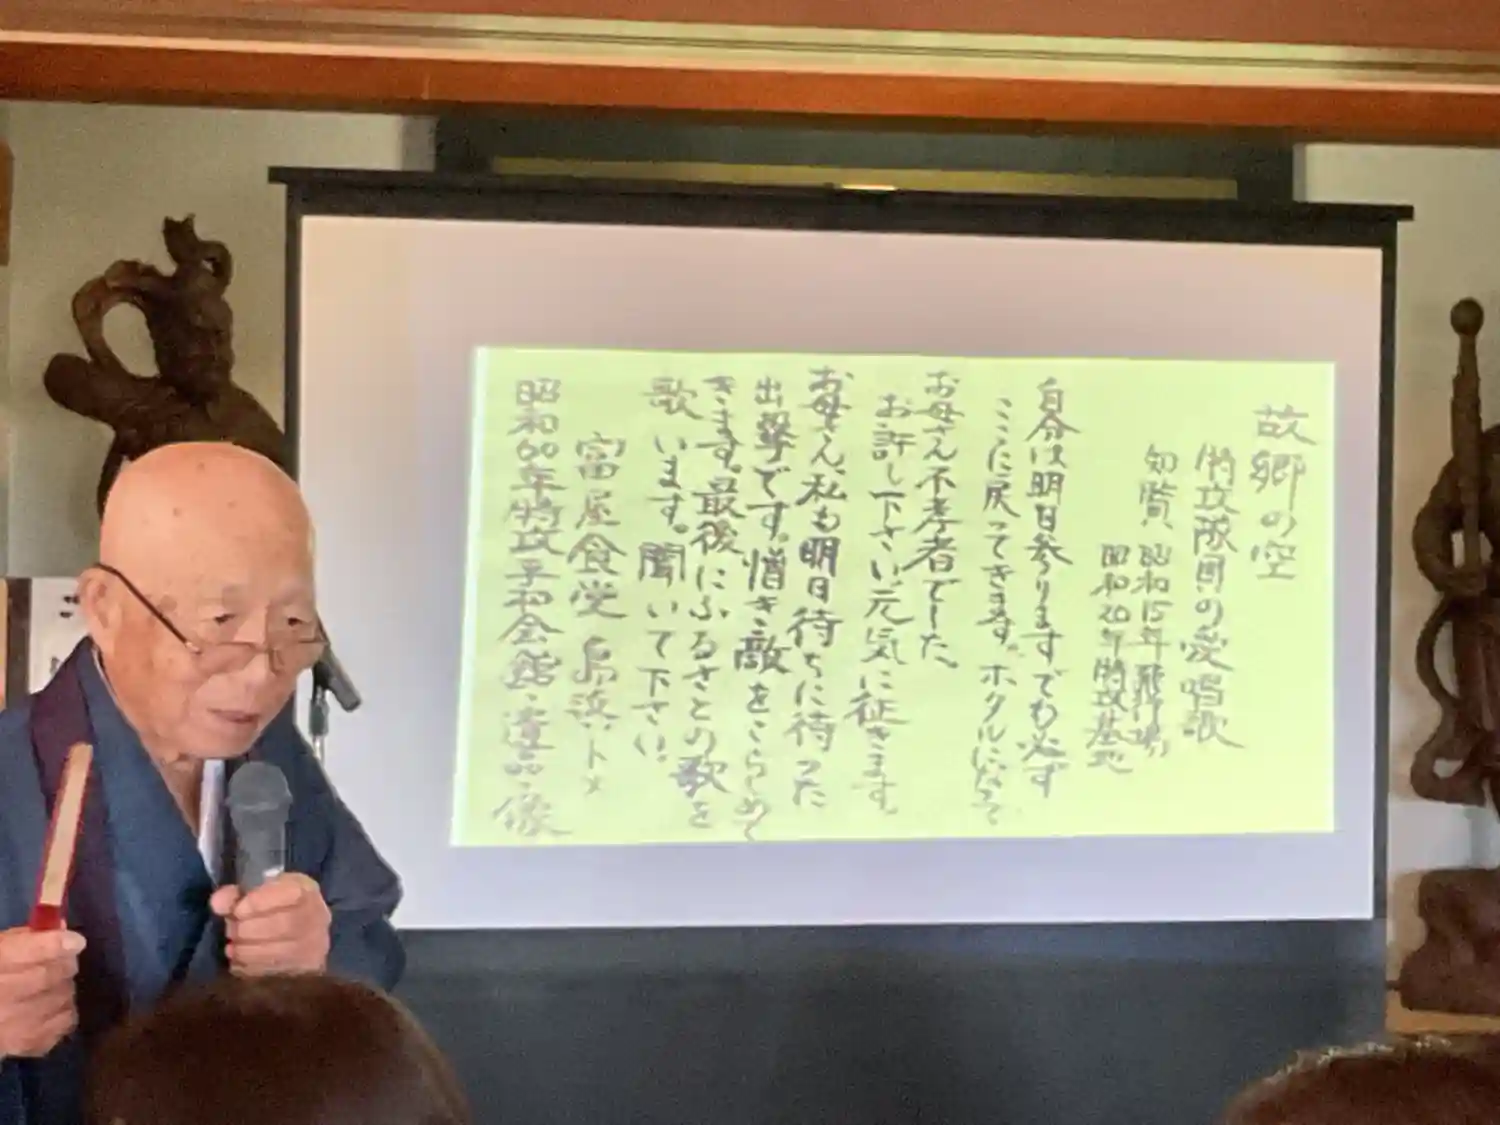 故郷の空
特攻隊員の愛唱歌
知覧、昭和15年飛行場
昭和20年特攻基地
自分は明日参りますでも必ず
ここに戻ってきます。ホタルになって
お母さん不孝者でした。
お許し下さい元気に征きます。
お母さん、私も明日待ちに待った
出撃です。憎き敵をこらしめて
きます。最後にふるさとの歌を
歌います。聞いて下さい。
富屋食堂 鳥浜トメ
昭和60年特攻平和会館・遺品・像